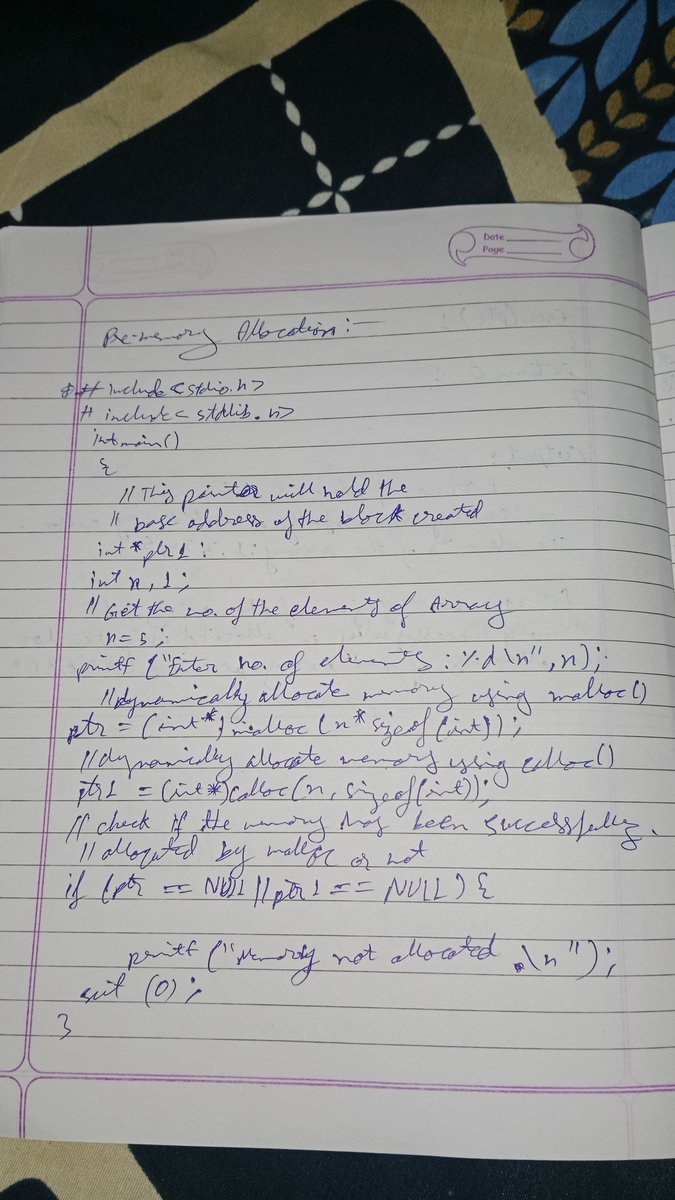 Date
Page
Re-memory Allocation:-
# include <stdio.h>
# include < stdlib.h>
int main()
{
// This pointer will hold the
// base address of the block created
int *ptr1 :
int n, 1;
// Get the no. of the elements of Array
n= 5;
printf ("Enter no. of elements : %d \n", n);
// dynamically allocate memory using malloc()
ptr = (int*) malloc (n* sizeof (int));
// dynamically allocate memory using calloc()
ptr1 = (int*) calloc (n, sizeof(int));
// check if the memory has been successfully.
// allocated by malloc or not
if (ptr == NULL || ptr1 == NULL) {
printf ("Memory not allocated .\n");
exit (0);
}